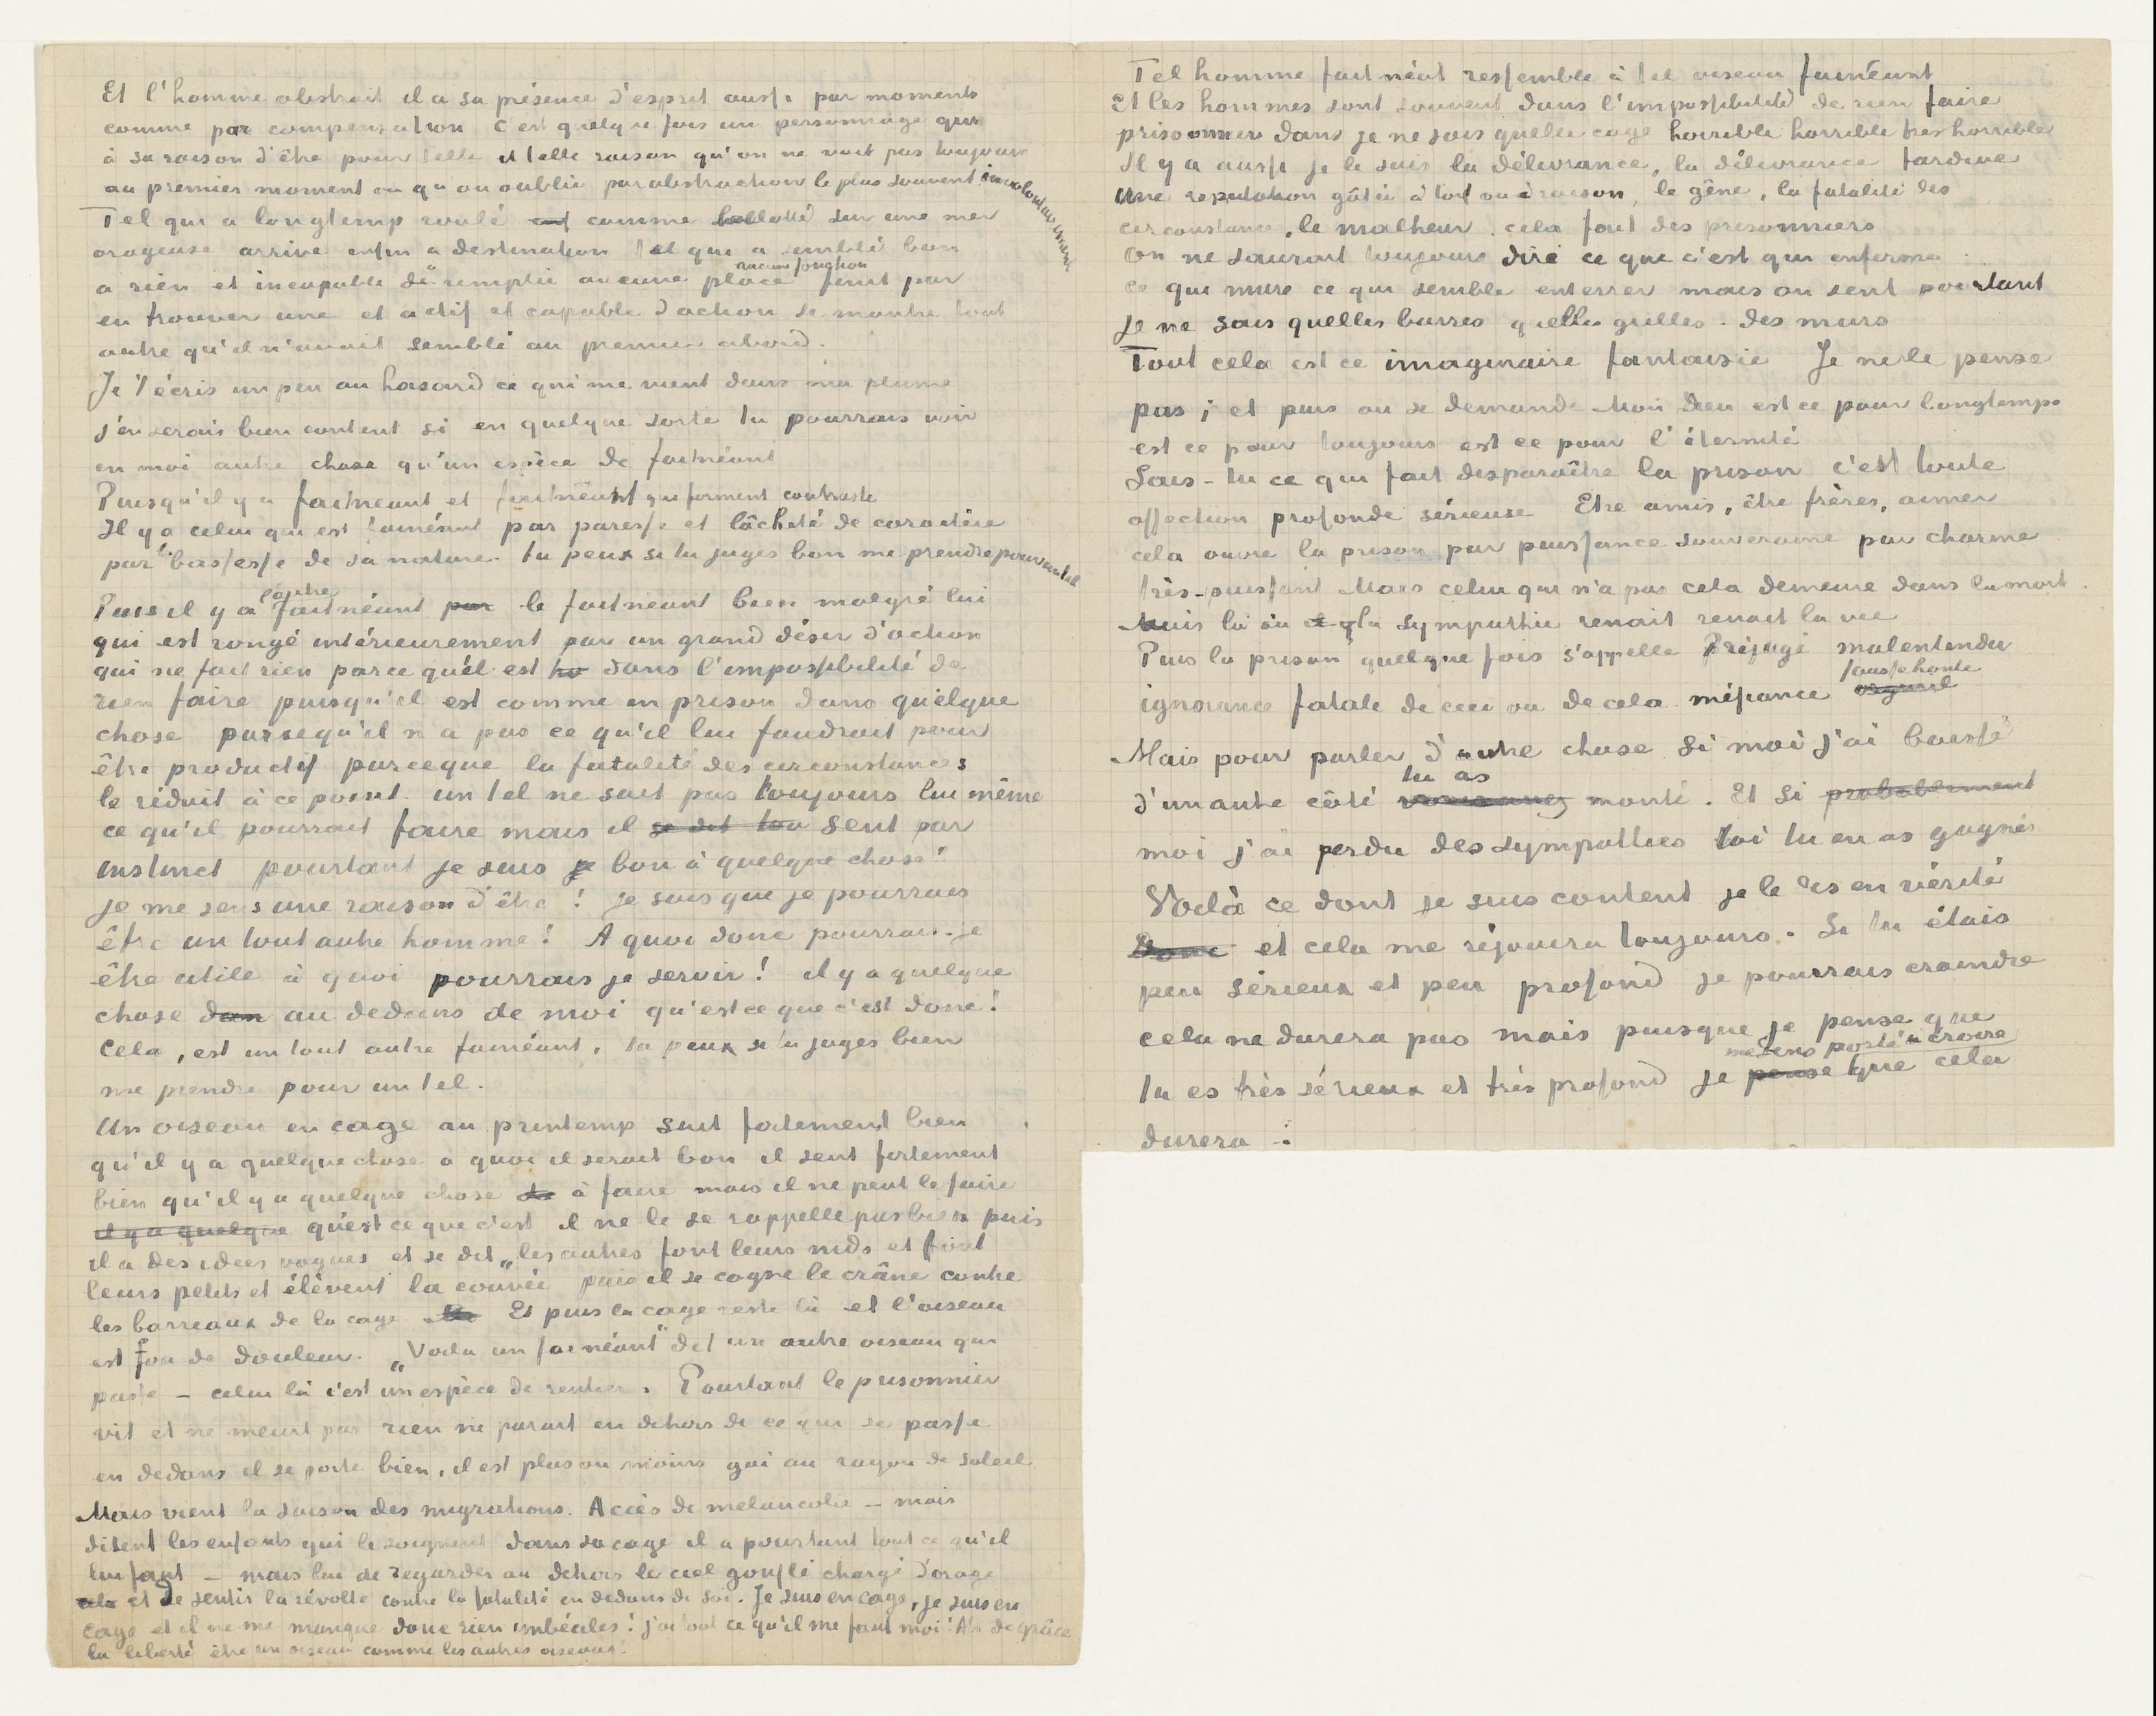 Et l'homme abstrait il a sa présence d'esprit aussi par moments
comme par compensation C'est quelque fois un personnage qui
à sa raison d'être pour telle et telle raison qu'on ne voit pas toujours
au premier moment ou qu'on oublie par abstraction le plus souvent involontairement
Tel qui a longtemp roulé comme ballotté sur une mer
orageuse arrive enfin a destination Tel qui a semblé bon
a rien et incapable de remplir aucune place aucune fonction finit par
en trouver une et actif et capable d'action se montre tout
autre qu'il n'avait semblé au premier abord.
Je t'écris un peu au hasard ce qui me vient dans ma plume
j'en serais bien content si en quelque sorte tu pourrais voir
en moi autre chose qu'un espèce de faitnéant
Puisqu'il y a faitneant et faitnéant qui forment contraste
Il y a celui qui est fainéant par paresse et lâcheté de caractère
par la bassesse de sa nature. tu peux si tu juges bon me prendre pour un tel
Puis il y a l'autre faitnéant par le faitneant bien malgré lui
qui est rongé intérieurement par un grand désir d'action
qui ne fait rien parce qu'il est ho dans l'impossibilité de
rien faire puisqu'il est comme en prison dans quelque
chose parsequ'il n'a pas ce qu'il lui faudrait pour
être productif parceque la fatalité des circonstances
le réduit à ce point. un tel ne sait pas toujours lui même
ce qu'il pourrait faire mais il se dit tou sent par
instinct pourtant je suis je bon à quelque chose!
je me sens une raison d'être! je sais que je pourrais
être un tout autre homme! A quoi donc pourrais-je
être utile à quoi pourrais je servir! il y a quelque
chose dan au dedans de moi qu'est ce que c'est donc!
Cela, est un tout autre fainéant, tu peux si tu juges bien
me prendre pour un tel.
Un oiseau en cage au printemp sait fortement bien
qu'il y a quelque chose a quoi il serait bon il sent fortement
bien qu'il y a quelque chose de à faire mais il ne peut le faire
il y a quelque qu'est ce que c'est il ne le se rappelle pas bien puis
il a des idees vagues et se dit „les autres font leurs nids et font
leurs petits et élèvent la couvée puis il se cogne le crâne contre
les barreaux de la cage Et puis la cage reste là et l'oiseau
est fou de douleur. „Voila un fainéant" dit un autre oiseau qui
passe – celui là c'est un espèce de rentier. Pourtant le prisonnier
vit et ne meurt pas rien ne parait en dehors de ce qui se passe
en dedans il se porte bien, il est plus ou moins gai au rayon de soleil.
Mais vient la saison des migrations. Accès de melancolie – mais
disent les enfants qui le soignent dans sa cage il a pourtant tout ce qu'il
lui faut – mais lui de regarder au dehors le ciel gonflé chargé d'orage
et de sentir la révolte contre la fatalité en dedans de soi. Je suis en cage, je suis en
cage et il ne me manque donc rien imbéciles! j'ai tout ce qu'il me faut moi! Ah de grâce
la liberté être un oiseau comme les autres oiseaux.
Tel homme faitnéat ressemble à tel oiseau fainéant
Et les hommes sont souvent dans l'impossibilité de rien faire
prisonnier dans je ne sais quelle cage horrible horrible très horrible
Il y a aussi je le sais la délivrance, la délivrance tardive
Une reputation gâtée à tort ou à raison, le gêne, la fatalité des
circonstance, le malheur, cela fait des prisonniers
On ne saurait toujours dire ce que c'est qui enferme
ce que mure ce qui semble enterrer mais on sent pourtant
je ne sais quelles barres quelles grilles. des murs
Tout cela est ce imaginaire fantaisie Je ne le pense
pas; et puis on se demande Mon Dieu est ce pour longtemps
est ce pour toujours est ce pour l'éternité
Sais-tu ce qui fait disparaître la prison c'est toute
affection profonde sérieuse Etre amis, être frères, aimer
cela ouvre la prison par puissance souveraine par charme
très-puissant Mais celui qui n'a pas cela demeure dans la mort.
Mais là où la sympathie renait renait la vie
Puis la prison quelque fois s'appelle Préjugé malentendu
ignorance fatale de ceci ou de cela méfiance orgueil fausse honte
Mais pour parler d'autre chose Si moi j'ai baissé
d'un autre côté tu as monté. Et si probablement
moi j'ai perdu des sympathies toi tu en as gagnés
Voilà ce dont je suis content je le dis en vérité
Donc et cela me réjouira toujours. Si tu étais
peu sérieux et peu profond je pourrais craindre
cela ne durera pas mais puisque je pense que
tu es très sérieux et très profond je pense me sens porté à croire que cela
durera .